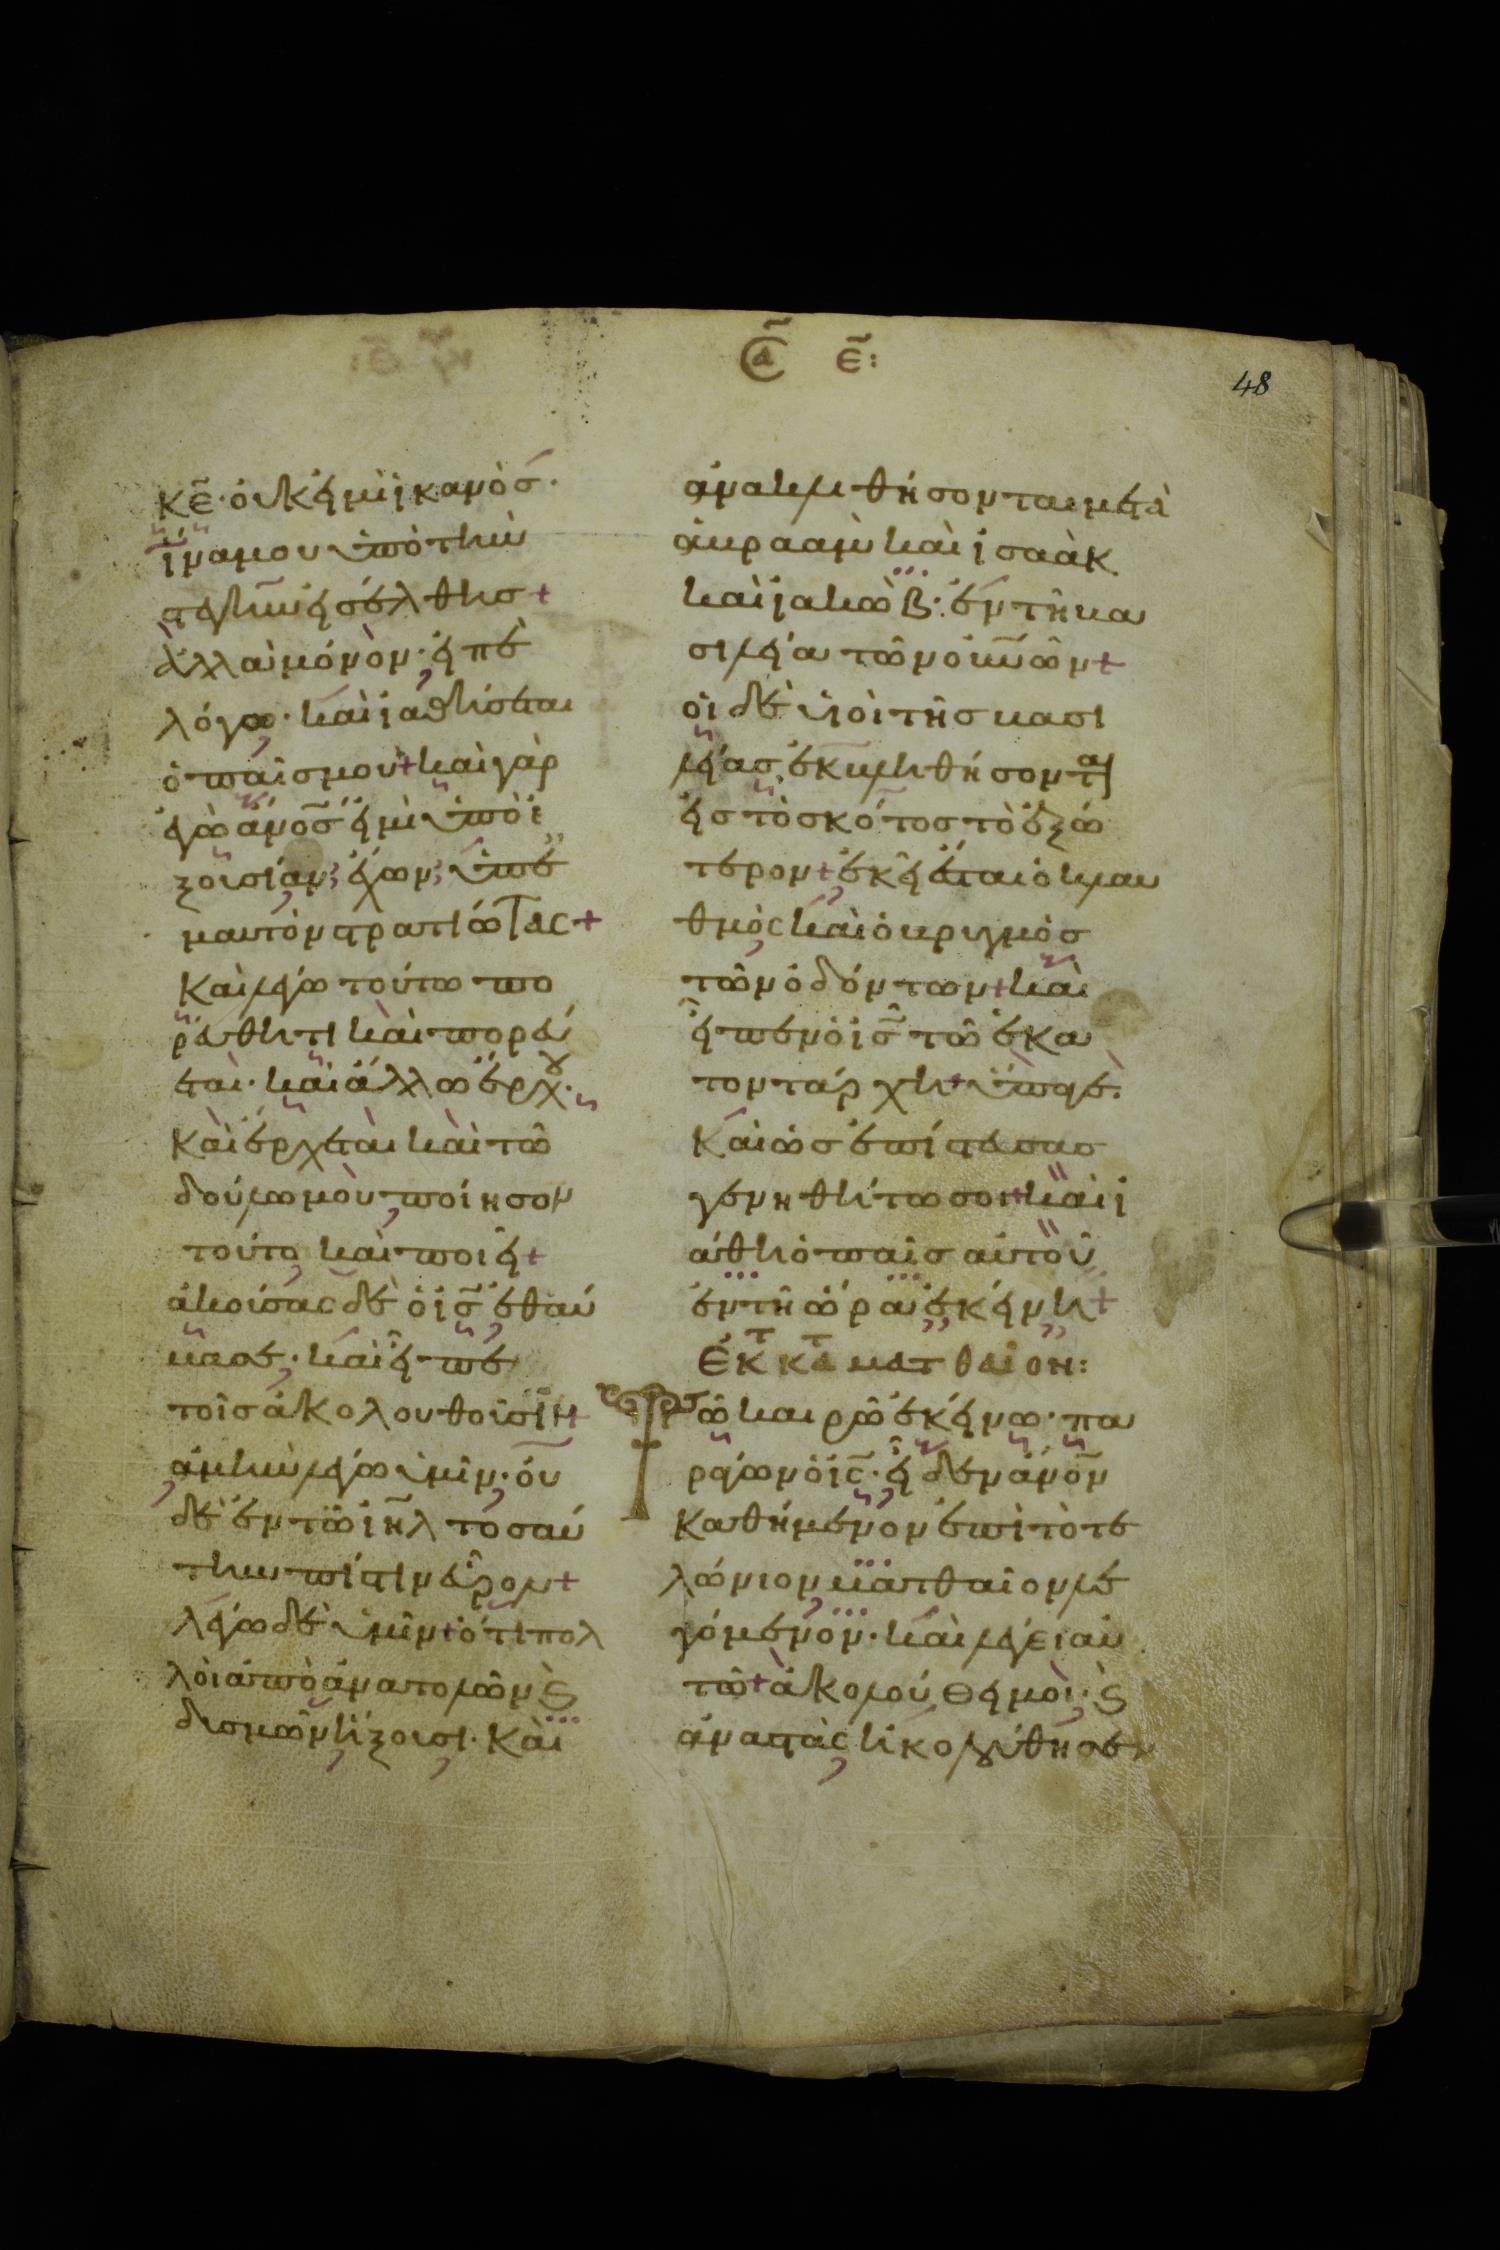 Σᾱ ε̄:
48
κ̅ε̅· ὀυκ ἐιμὶ ἱκανὸσ·
ἵνα μου ὑπὸ τὴν
στέγην ἐισέλθησ +
ἀλλὰ μόνον· ἐιπὲ
λόγω· καὶ ἰαθήσεται
ὁ παῖσ μου + καὶ γὰρ
ἐγὼ ἄν̅ο̅σ̅ ἐιμὶ ὑπὸ ἐ
ξουσίαν, ἔχων, ὑπ ἐ
μαυτὸν στρατιώτας +
καὶ λέγω τούτω πο
ρεύθητι καὶ πορεύ
εται· καὶ ἄλλω ἔρχου·
καὶ ἔρχεται καὶ τῶ
δούλω μου ποίησον
τοῦτο καὶ ποιεῖ +
ἀκούσας δὲ ὁ ι̅σ̅ ἐθαύ
μασε· καὶ εἶπε
τοῖσ ἀκολουθοῦσιν +
ἀμὴν λέγω ὑμῖν· ὀυ
δὲ ἐν τῶ ι̅η̅λ̅ τοσαύ
την πίστιν εὗρον +
λέγω δὲ ὑμῖν + ὅτι πολ
λοὶ ἀπὸ ἀνατολῶν ϗ
δυσμῶν ἥξουσι· καὶ
ἀνακληθήσονται μετὰ
ἀβραὰμ καὶ ἰσαὰκ
καὶ ἰακὼβ· ἐν τῆ βα
σιλεία τῶν ὀυ̅ν̅ῶν +
ὁι δὲ υἱοὶ τῆσ βασι
λείασ ἐκβληθήσονται
ἐισ τὸ σκότοσ τὸ ἐξώ
τερον + ἐκεῖ ἔσται ὁ κλαυ
θμὸς καὶ ὁ βρυγμὸσ
τῶν ὀδόντων + καὶ
εἶπεν ὁ ι̅σ̅ τῶ ἑκα
τοντάρχη + ὕπαγε·
καὶ ὡσ ἐπίστευσασ
γενηθήτω σοι + καὶ ἰ
άθη ὁ παῖσ αὐτοῦ
ἐν τῆ ὥρα ἐκείνη +
Ἐκ τ κατ ματθαῖον:
Τῶ καιρῶ ἐκείνω· πα
ράγων ὁ ι̅ς̅· εἶδεν ἄν̅ο̅ν̅
καθήμενον ἐπὶ τὸ τε
λώνιον ματθαῖον λε
γόμενον· καὶ λέγει αὐ
τῶ + ἀκολούθει μοι· ϗ
ἀναστὰς ἠκολούθησεν